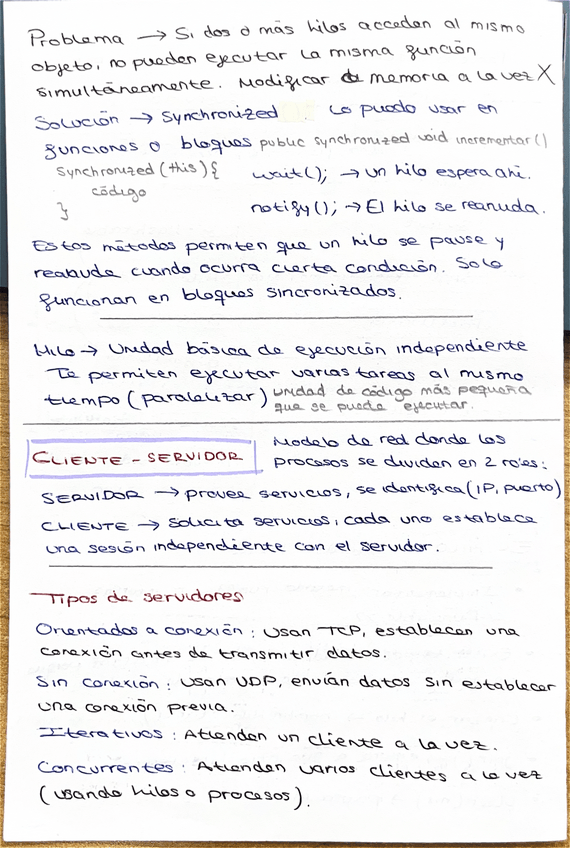 Problema → Si dos o más hilos acceden al mismo
objeto, no pueden ejecutar la misma función
simultáneamente. Modificar memoria a la vez X
Solución → Synchronized Lo puedo usar en
funciones o bloques public synchronized void incrementar()
Synchronized (this) {
código
}
wait(); → un hilo espera ahí.
notify(); → El hilo se reanuda.
Estos métodos permiten que un hilo se pause y
reabuda cuando ocurra cierta condición. Solo
funcionan en bloques sincronizados.
Hilo → Unidad básica de ejecución independiente
Te permiten ejecutar varias tareas al mismo
tiempo (paralelizar) unidad de código más pequeña
que se puede ejecutar.
CLIENTE - SERVIDOR
Modelo de red donde los
procesos se dividen en 2 roles:
SERVIDOR → provee servicios, se identifica (IP, puerto)
CLIENTE → Solicita servicios, cada uno establece
una sesión independiente con el servidor.
Tipos de servidores
Orientados a conexión : Usan TCP, establecen una
conexión antes de transmitir datos.
Sin conexión : usan UDP, envían datos sin establecer
una conexión previa.
Iterativos : Atienden un cliente a la vez.
Concurrentes : Atienden varios clientes a la vez
(usando hilos o procesos).